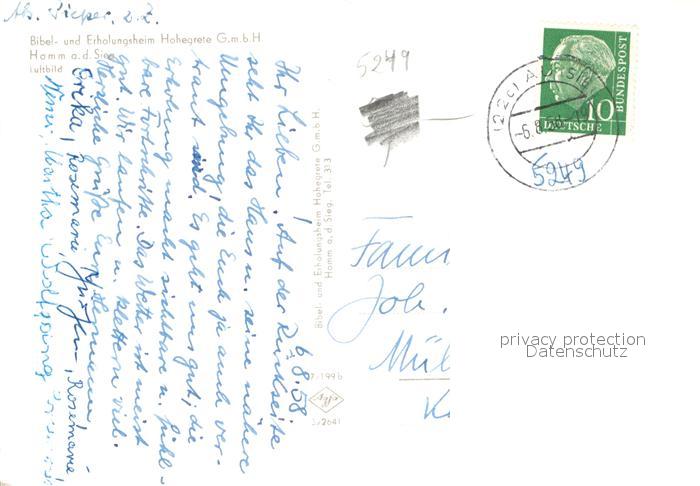 Abs. Pieper, z. Z.
Bibel- und Erholungsheim Hohegrete G.m.b.H.
Hamm a. d. Sieg
Luftbild
6/8.58
Ihr Lieben! Auf der Rückseite
seht Ihr das Haus u. seine nähere
Umgebung, die Euch ja auch ver-
traut sind. Es geht uns gut, die
Erholung macht sichtbare u. fühl-
bare Fortschritte. Das Wetter ist meist
gut. Wir laufen u. klettern viel.
Herzliche Grüße Euch allen
Erika, Rosemarie, Rosemarie
Martha, Wolfgang
Bibel- und Erholungsheim Hohegrete G.m.b.H.
Hamm a. d. Sieg, Tel. 313
5249
10
DEUTSCHE
BUNDESPOST
(22c) A
-6.8.
5249
Fam
Joh.
Mül
K
privacy protection
Datenschutz
199b
5/2641